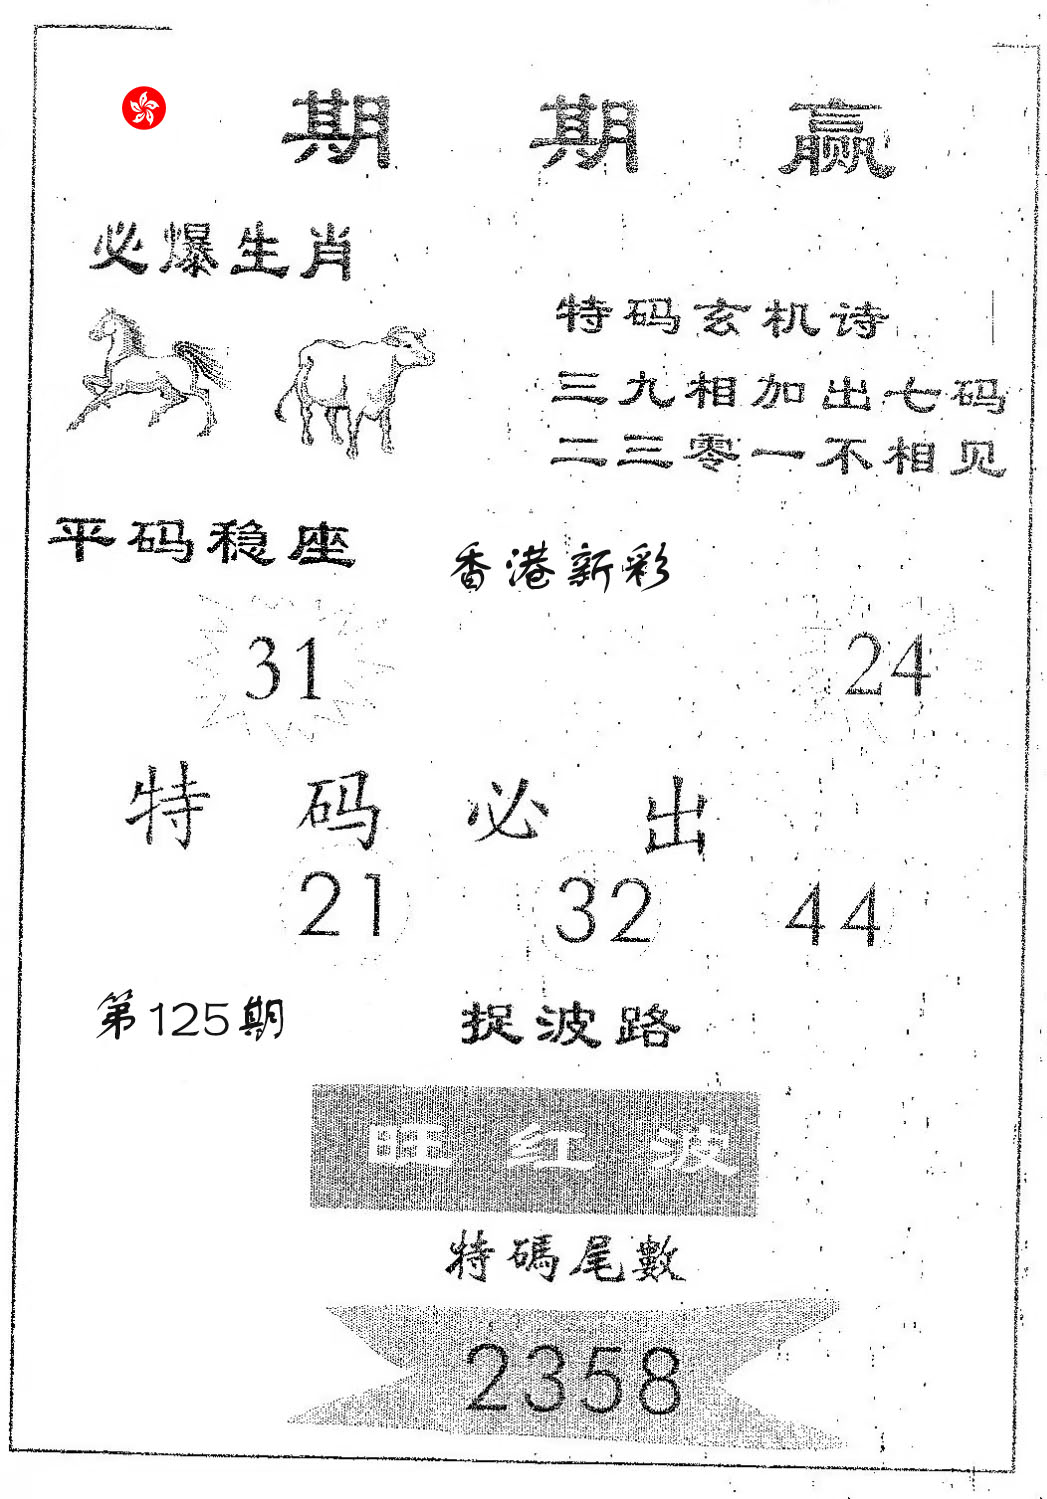 期期赢
必爆生肖
特码玄机诗
三九相加出七码
二三零一不相见
平码稳座
香港新彩
31
24
特码必出
21 32 44
第125期
捉波路
旺红波
特碼尾數
2358